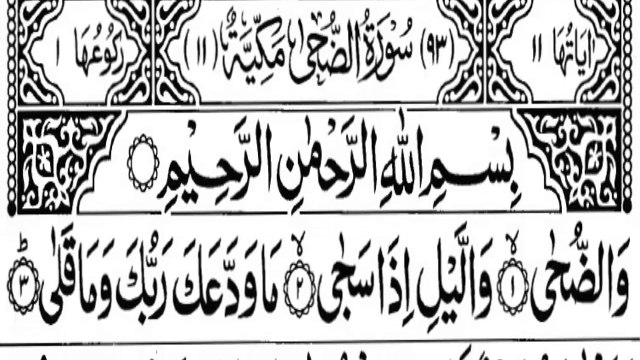 اٰيَاتُهَا ١١ (٩٣) سُوْرَةُ الضُّحٰى مَكِّيَّةٌ (١١) رُكُوْعُهَا ١
بِسْمِ اللّٰهِ الرَّحْمٰنِ الرَّحِيْمِ
وَالضُّحٰى ۙ‏ ١ وَالَّيْلِ اِذَا سَجٰى ۙ‏ ٢ مَا وَدَّعَكَ رَبُّكَ وَمَا قَلٰى ؕ‏ ٣